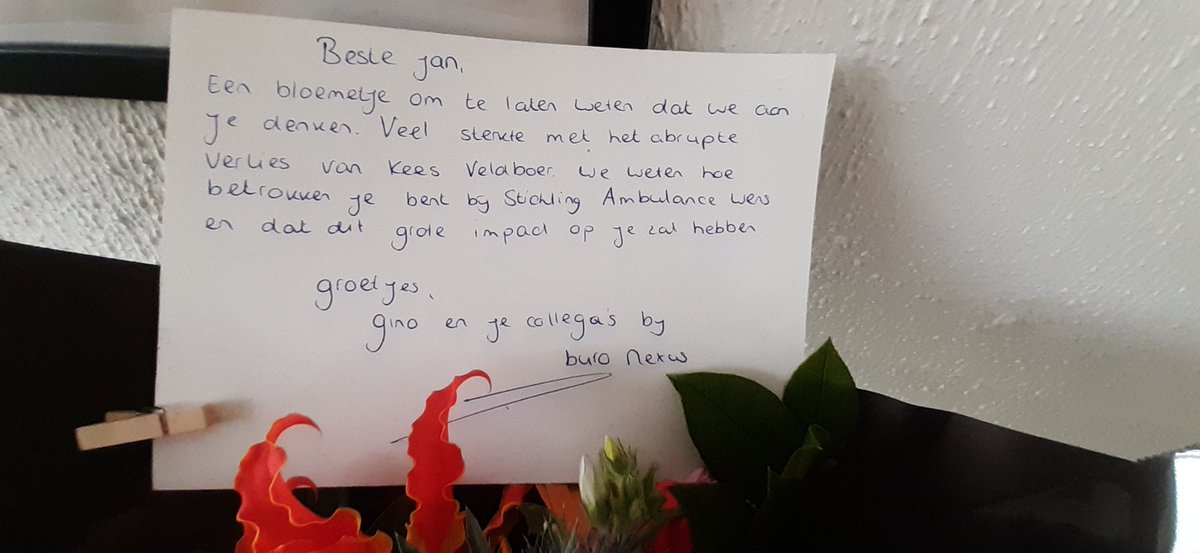 Beste Jan,
Een bloemetje om te laten weten dat we aan
je denken. Veel sterkte met het abrupte
verlies van Kees Veldboer. We weten hoe
betrokken je bent by Stichting Ambulance wens
en dat dit grote impact op je zal hebben.
groetjes,
gino en je collega's by
buro Nexus